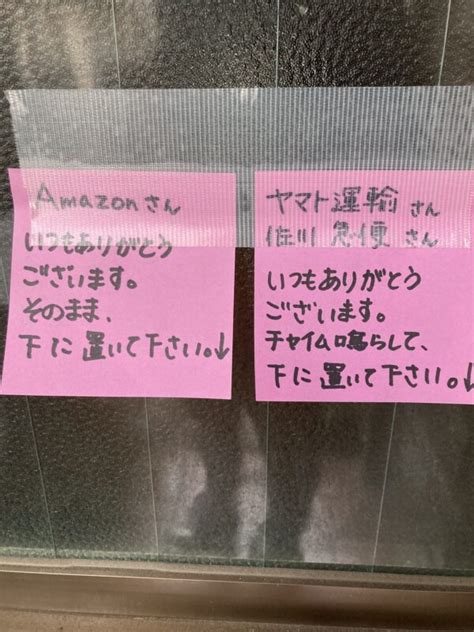 Amazonさん
いつもありがとう
ございます。
そのまま、
下に置いて下さい。↓
ヤマト運輸さん
佐川急便さん
いつもありがとう
ございます。
チャイム鳴らして、
下に置いて下さい。↓